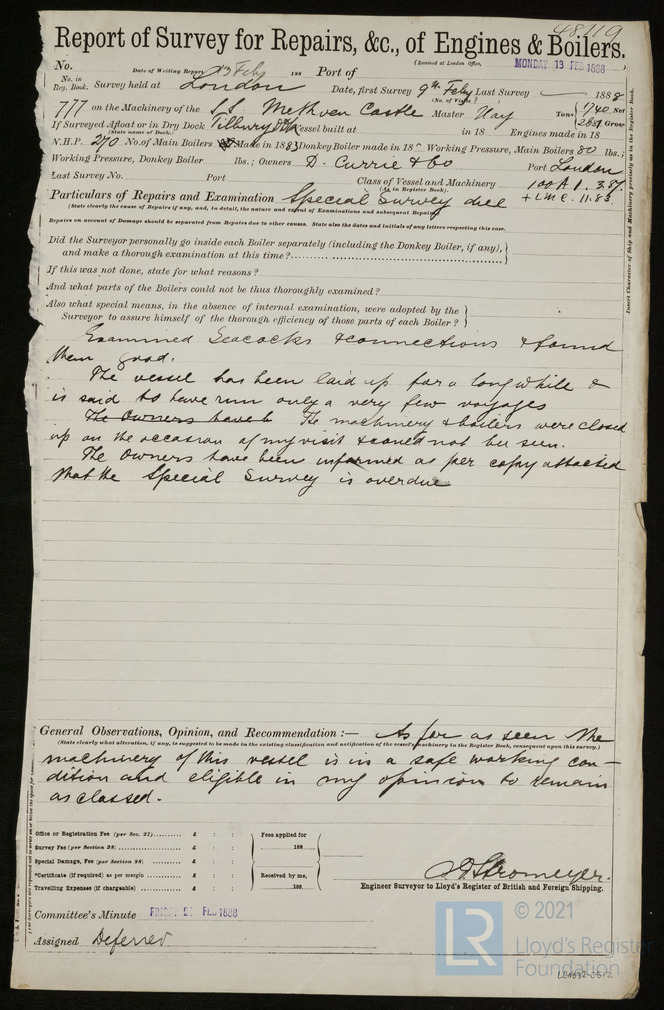 48119
Report of Survey for Repairs, &c., of Engines & Boilers.
(Received at London Office, MONDAY 13 FEB 1888)
No. Date of Writing Report Feby 188 Port of
No. in Reg. Book. Survey held at London Date, first Survey 9th Feby Last Survey — 1888
(No. of Visits)
777 on the Machinery of the S.S. Methven Castle Master Hay Tons { 1740 Net 2681 Gross
If Surveyed Afloat or in Dry Dock Tilbury Dk Vessel built at in 18 Engines made in 18
(State name of Dock.)
N.H.P. 270 No. of Main Boilers Made in 1883 Donkey Boiler made in 18 Working Pressure, Main Boilers 80 lbs.;
Working Pressure, Donkey Boiler lbs.; Owners D. Currie & Co Port London
Last Survey No. Port Class of Vessel and Machinery 100 A 1. 3.87
(As in Register Book). + LMC. 11.83
Particulars of Repairs and Examination Special Survey due
(State clearly the cause of Repairs if any, and, in detail, the nature and extent of Examinations and subsequent Repairs)
Repairs on account of Damage should be separated from Repairs due to other causes. State also the dates and initials of any letters respecting this case.
Insert Character of Ship and Machinery precisely as in the Register Book.
Did the Surveyor personally go inside each Boiler separately (including the Donkey Boiler, if any),
and make a thorough examination at this time?
If this was not done, state for what reasons?
And what parts of the Boilers could not be thus thoroughly examined?
Also what special means, in the absence of internal examination, were adopted by the
Surveyor to assure himself of the thorough efficiency of those parts of each Boiler?
Examined Seacocks & connections & found
them good.
The vessel has been laid up for a long while &
is said to have run only a very few voyages
The Owners have b The machinery & boilers were closed
up on the occasion of my visit & could not be seen.
The Owners have been informed as per copy attached
that the Special Survey is overdue
General Observations, Opinion, and Recommendation :— As far as seen the
(State clearly what alteration, if any, is suggested to be made in the existing classification and notification of the vessel's machinery in the Register Book, consequent upon this survey.)
machinery of this vessel is in a safe working con-
dition and eligible in my opinion to remain
as classed.
Office or Registration Fee (per Sec. 27) £ : : Fees applied for
Survey Fee (per Section 28) £ : : 188
Special Damage, Fee (per Section 28) £ : :
*Certificate (if required) as per margin £ : : Received by me,
Travelling Expenses (if chargeable) £ : : 188
Stromeyer.
Engineer Surveyor to Lloyd's Register of British and Foreign Shipping.
Committee's Minute FRIDAY FEB 1888
Assigned Deferred
LR
© 2021
Lloyd's Register
Foundation